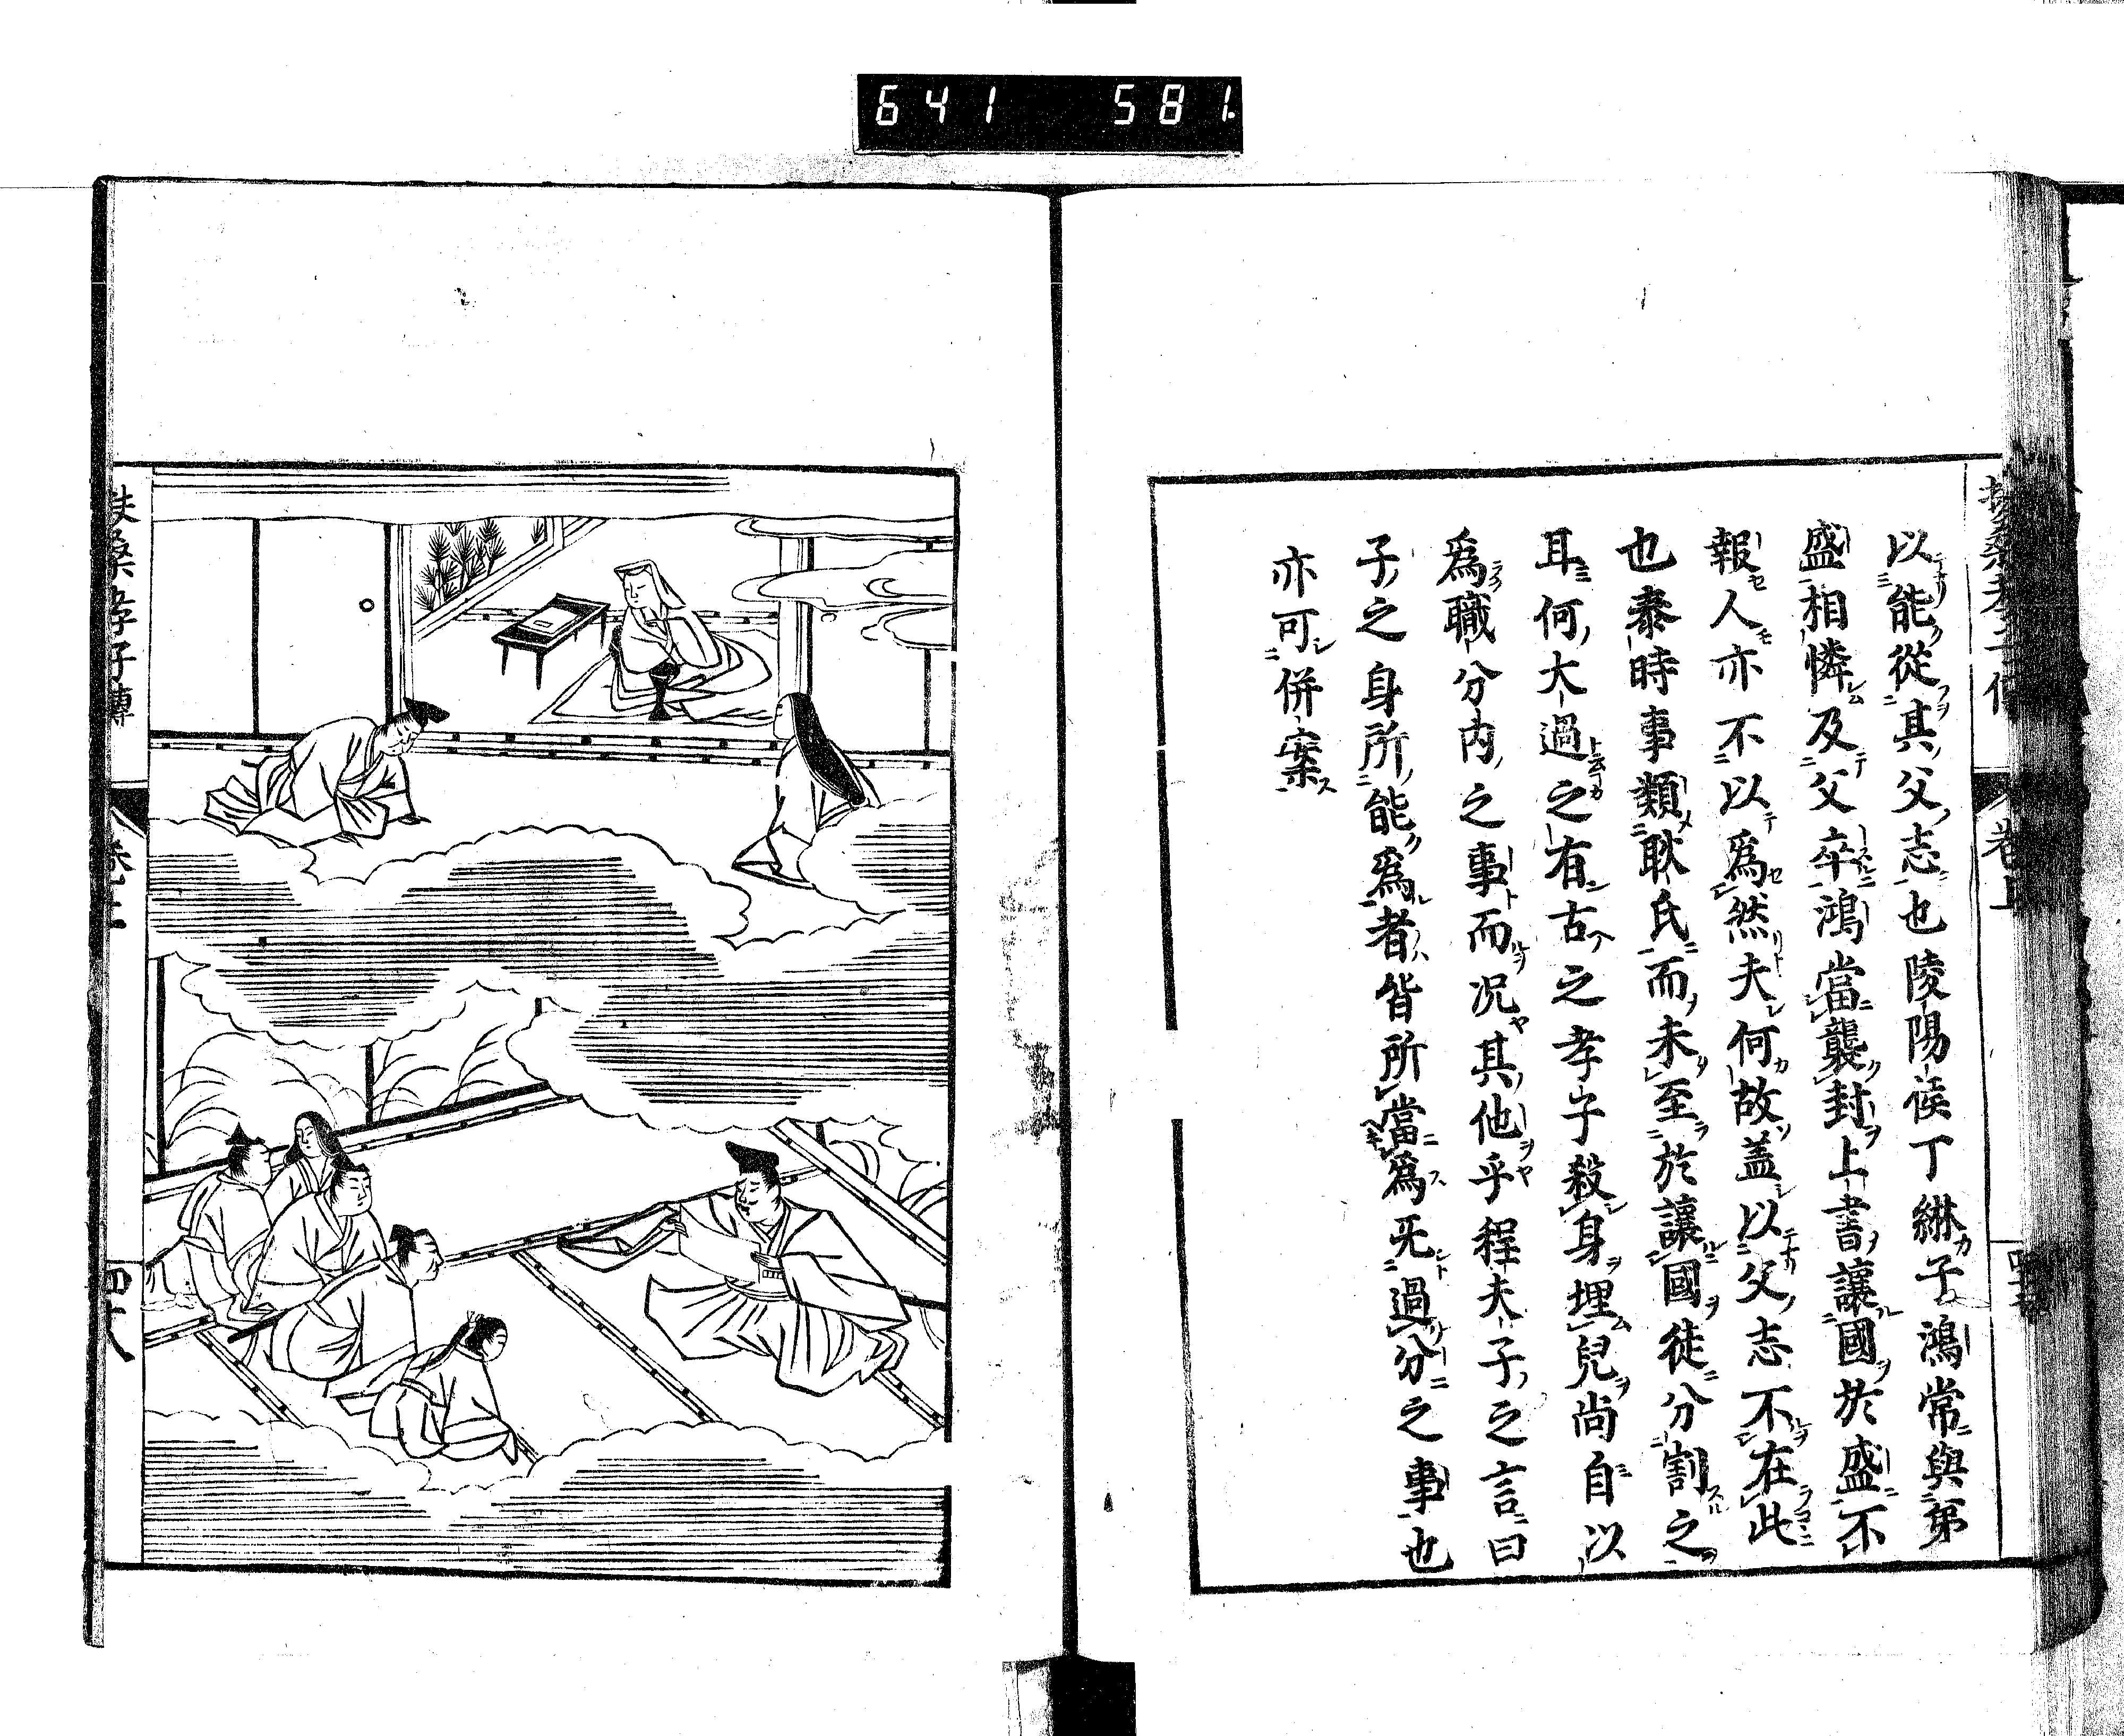 641 581
以能從其父志也陵陽侯丁綝子鴻常與第
盛相憐及父卒鴻當襲封上書讓國於盛不
報人亦不以爲然夫何故盖以父志不在此
也泰時事類耿氏而未至於讓國徒分割之
耳何大過之有古之孝子殺身埋兒尚自以
爲職分内之事而況其他乎程夫子之言曰
子之身所能爲者皆所當爲无過分之事也
亦可併案
扶桑孝子傳
卷上
四十八